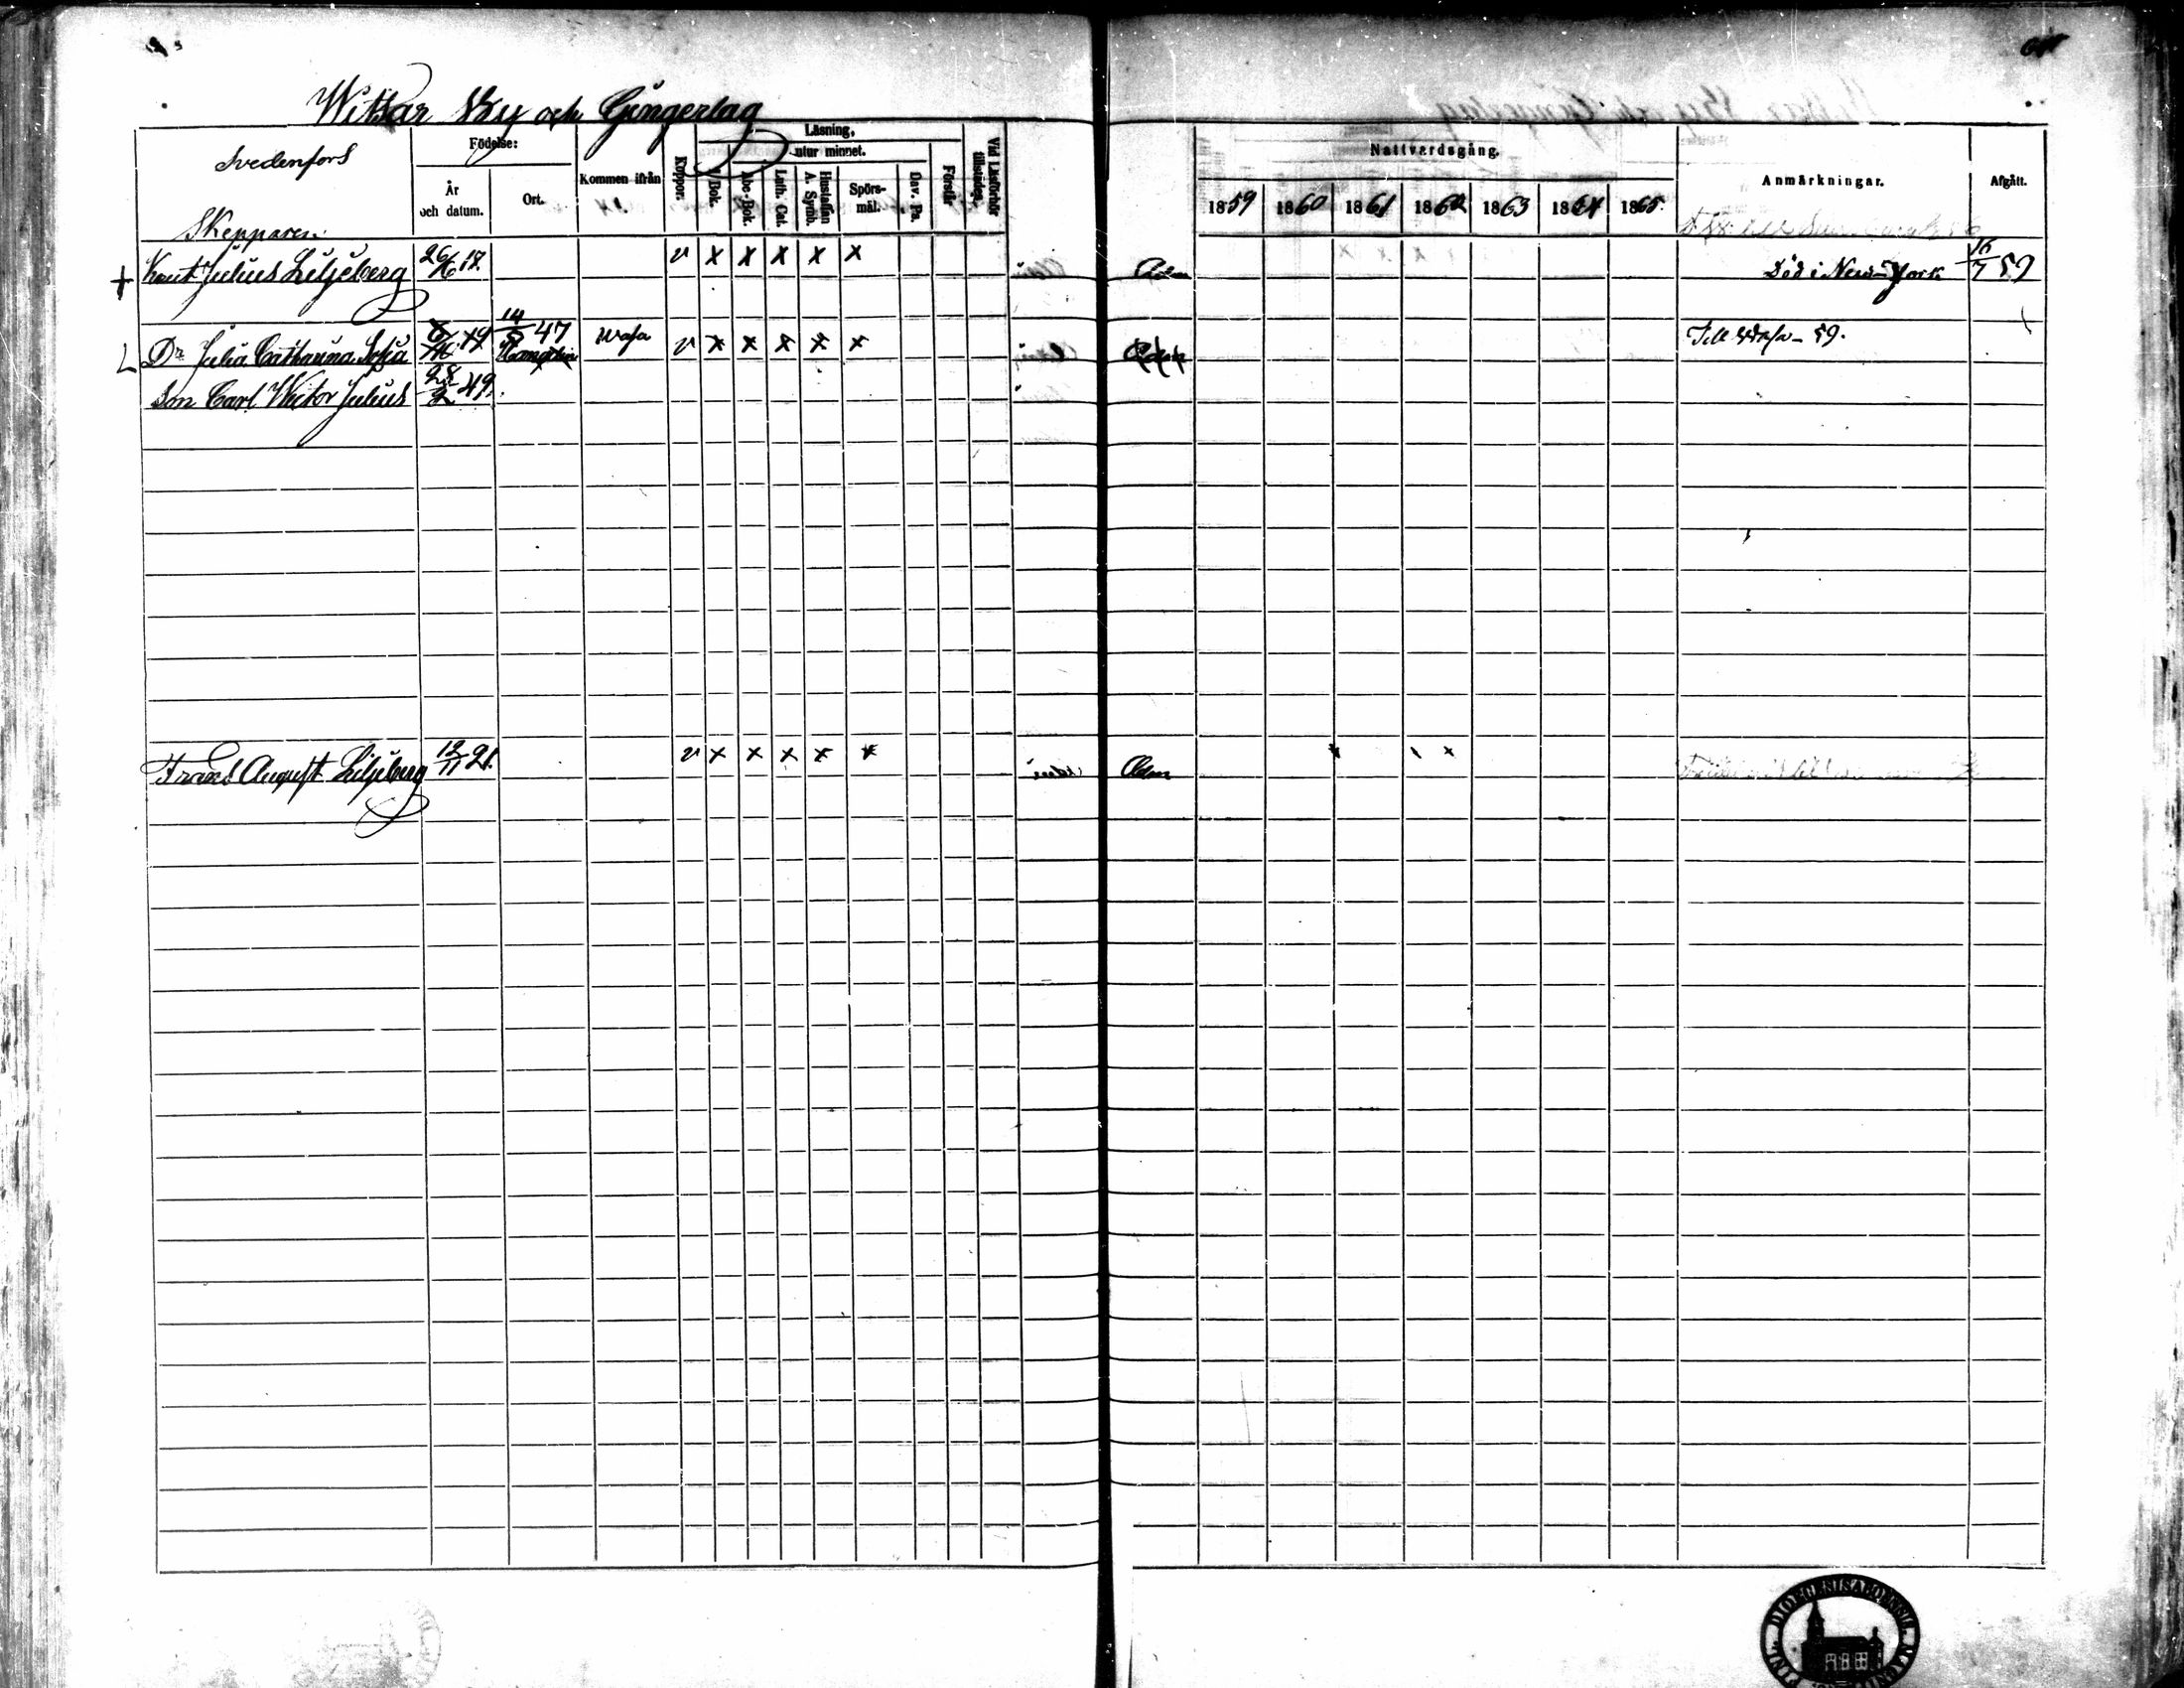 Witsar By och Gingerlag
Svedenfors
Födelse:
År och datum.
Ort.
Kommen ifrån
Koppor.
Läsning,
utur minnet.
Bok.
Abc-Bok.
Luth. Cat.
Hustaflan A. Symb.
Spörs-mål.
Dav. Ps.
Förstår
Vid Läsförhör tillstädes.
Nattvardsgång.
1859 1860 1861 1862 1863 1864 1865.
Anmärkningar.
Afgått.
Skepparen
+ Knut Julius Liljeberg 26/6 18. v x x x x x Död i New-York 16/7 59
14/5 47
Dr Julia Catharina Sofia Wasa v x x x x x Till Wasa 59.
Son Carl Victor Julius 28/2 49.
Frans August Liljeberg 12/11 21. v x x x x x Adm